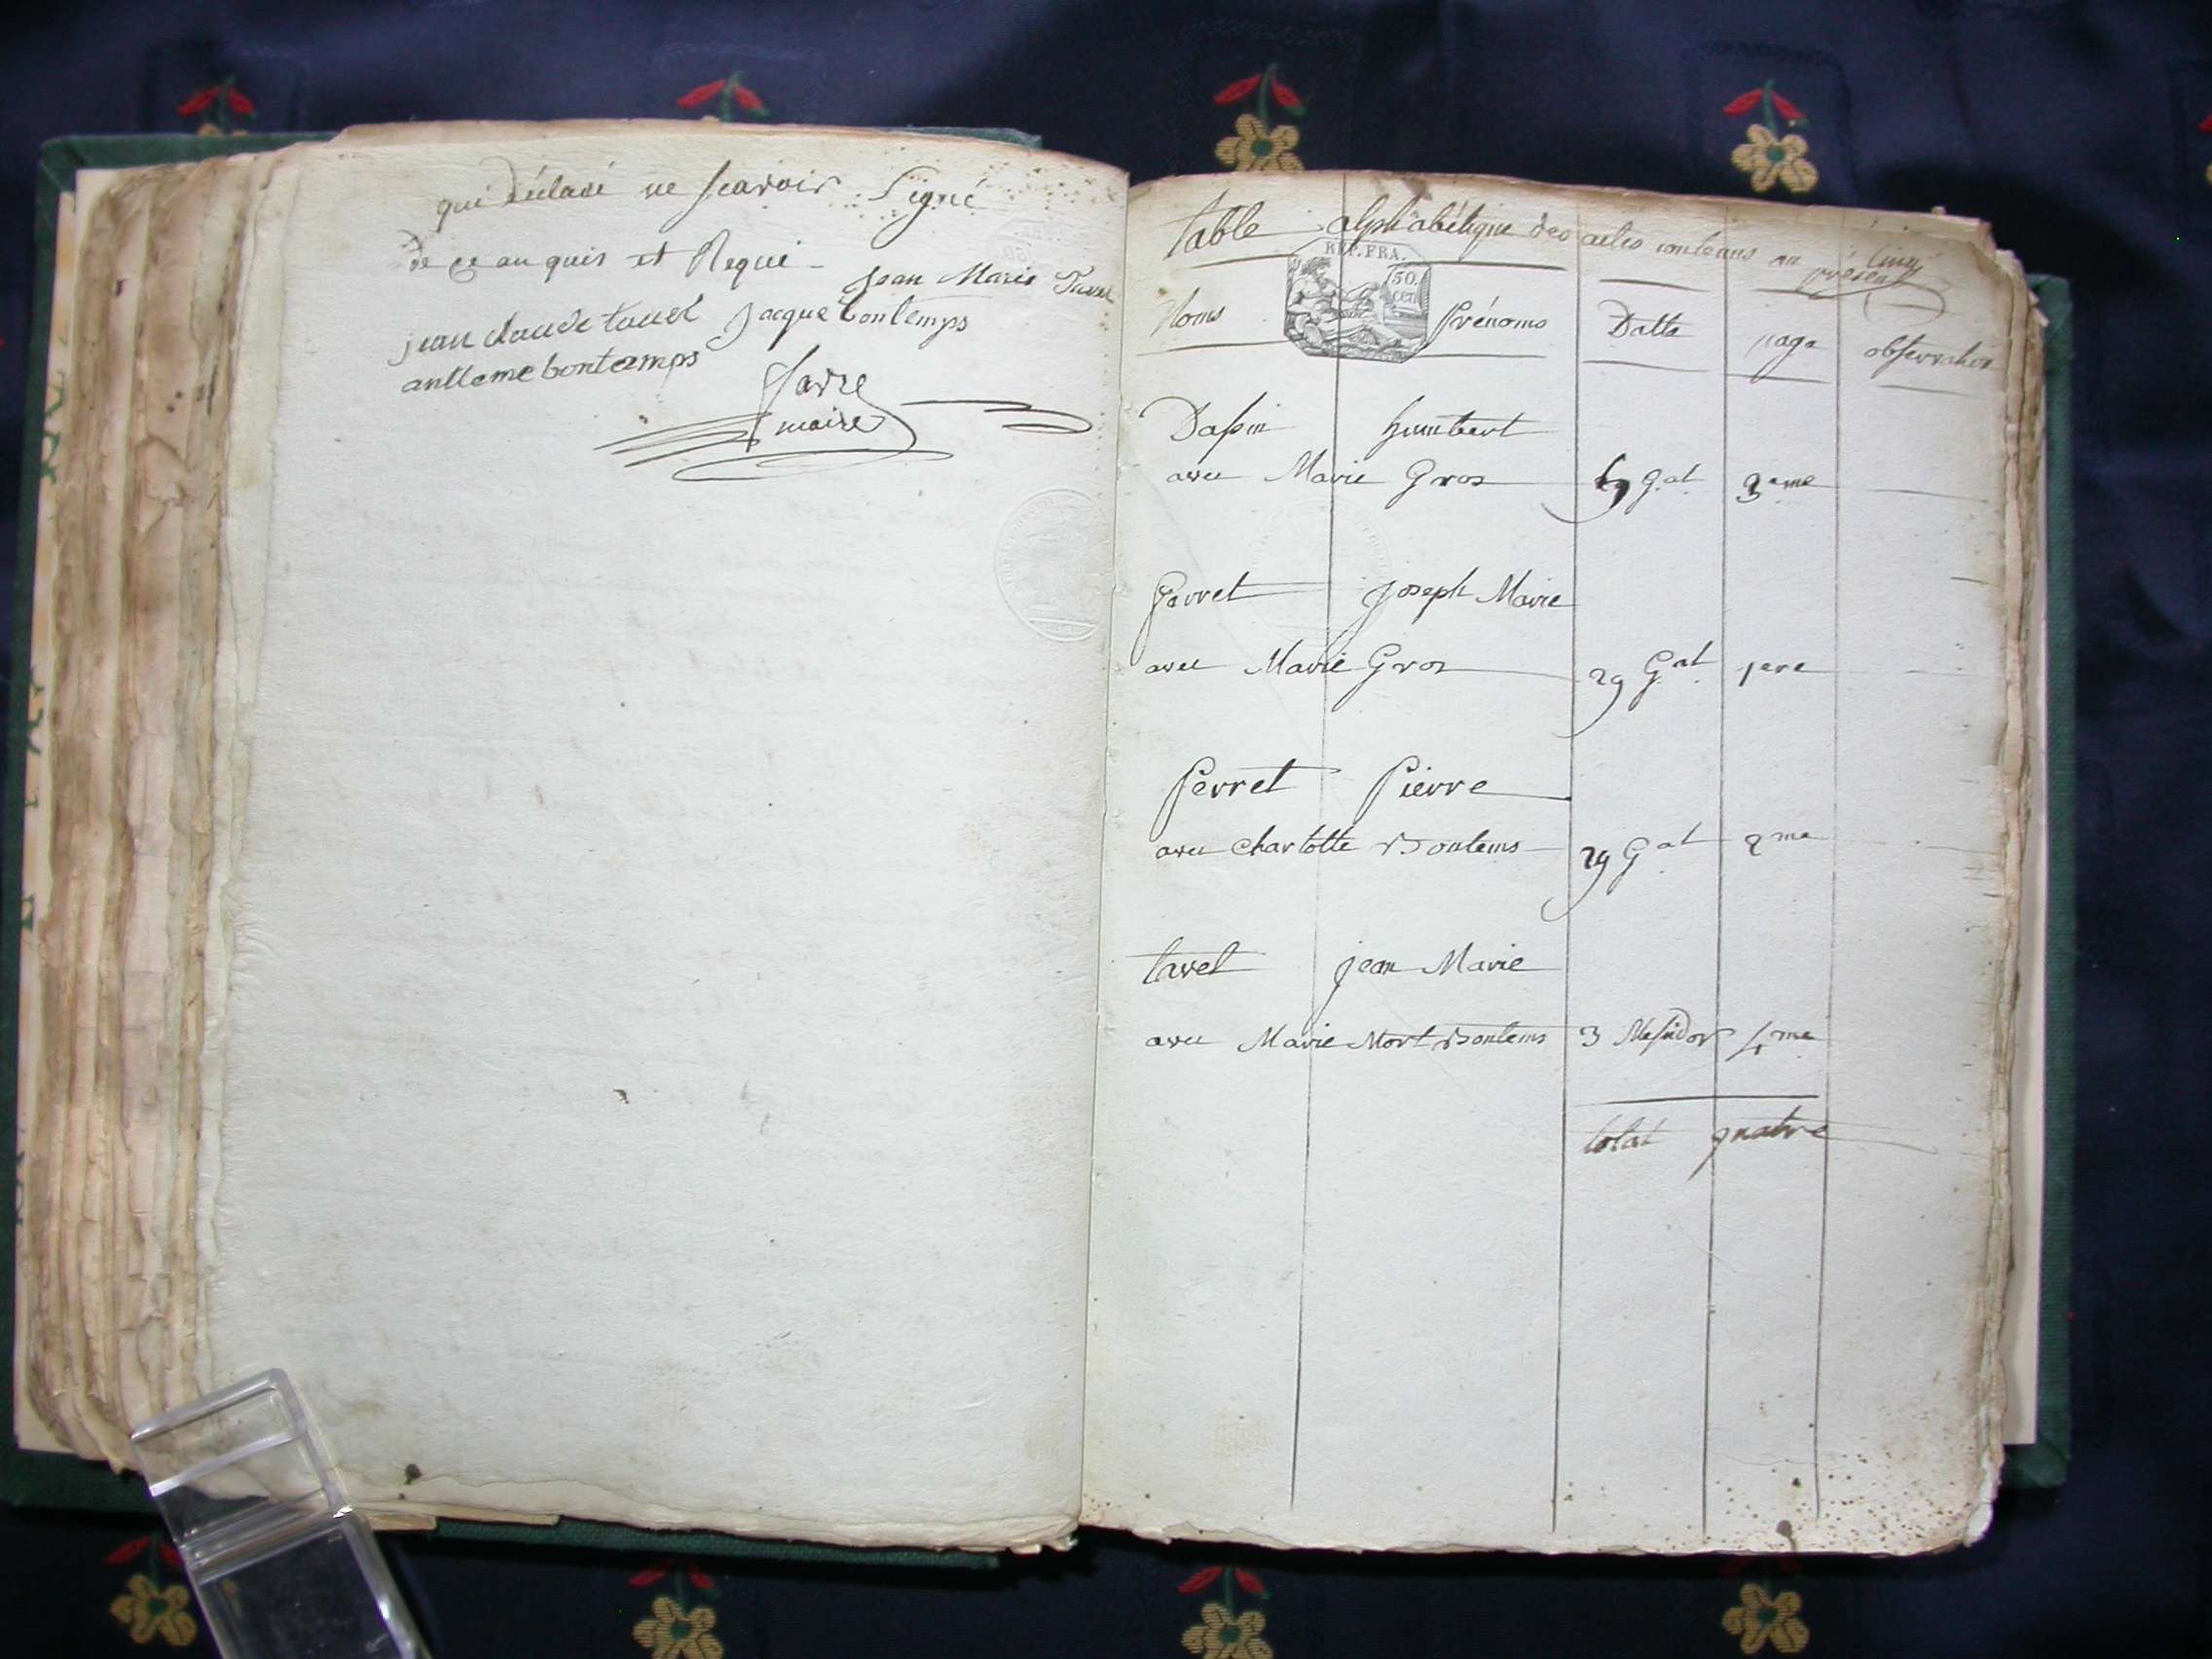 qui déclaré ne scavoir Signé
de ce anquis et Requi -
Jean Marie Tavel
jean claude tavel Jacque bontemps
antleme bontemps
favre
maire
table alphabétique des actes contenus au présent
cinq
REP. FRA.
50.
CEN
Noms Prénoms Datte page observation
Dassin humbert
avec Marie Gros 69 G.al 3eme
Perret Joseph Marie
avec Marie Gros 29 G.al 1ere
Perret Pierre
avec charlotte Bontems 29 G.al 2me
tavel jean Marie
avec Marie Mort Bontems 3 Messidor 4me
total quatre